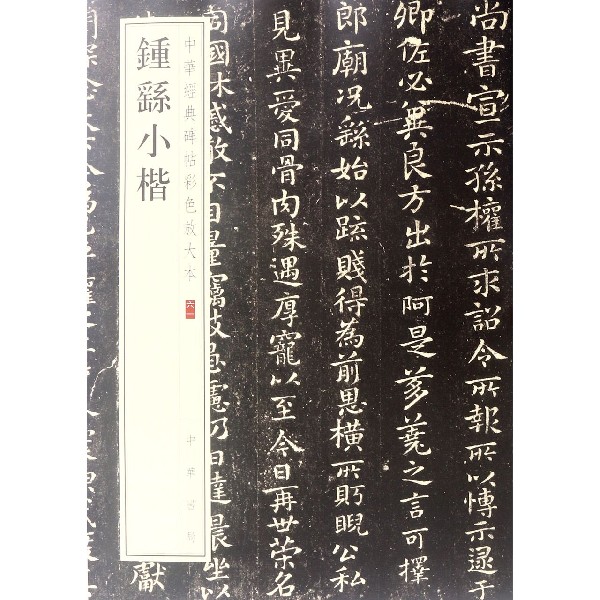 尚書宣示孫權所求詔令所報所以博示逮于
卿佐必冀良方出於阿是芻蕘之言可擇
郎廟況繇始以疏賤得為前恩橫所盱睨公私
見異愛同骨肉殊遇厚寵以至今日再世榮名
同國休慼敢不自量竊致愚慮仍日達晨坐以
獻
中華經典碑帖彩色放大本 六一
中華書局
鍾繇小楷